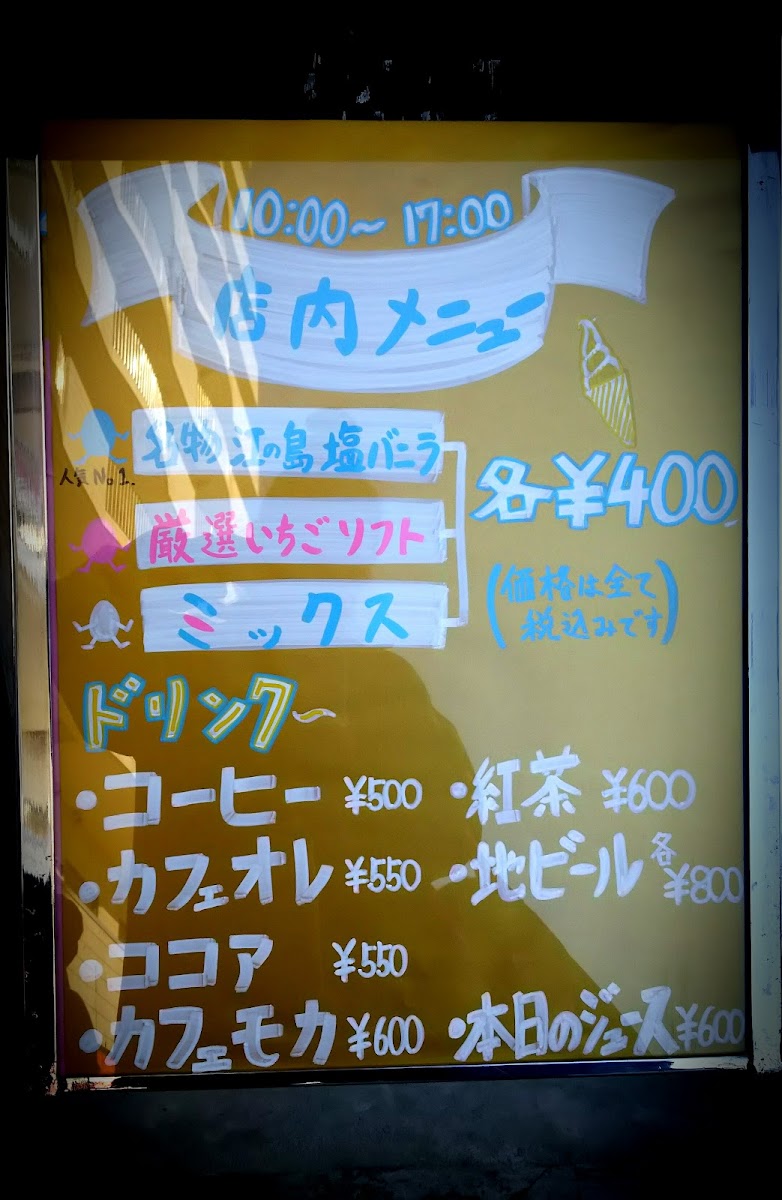 10:00～17:00
店内メニュー
名物江の島塩バニラ
人気No1.
厳選いちごソフト
ミックス
各¥400
(価格は全て
税込みです)
ドリンク～
・コーヒー ¥500
・カフェオレ ¥550
・ココア ¥550
・カフェモカ ¥600
・紅茶 ¥600
・地ビール 各¥800
・本日のジュース ¥600